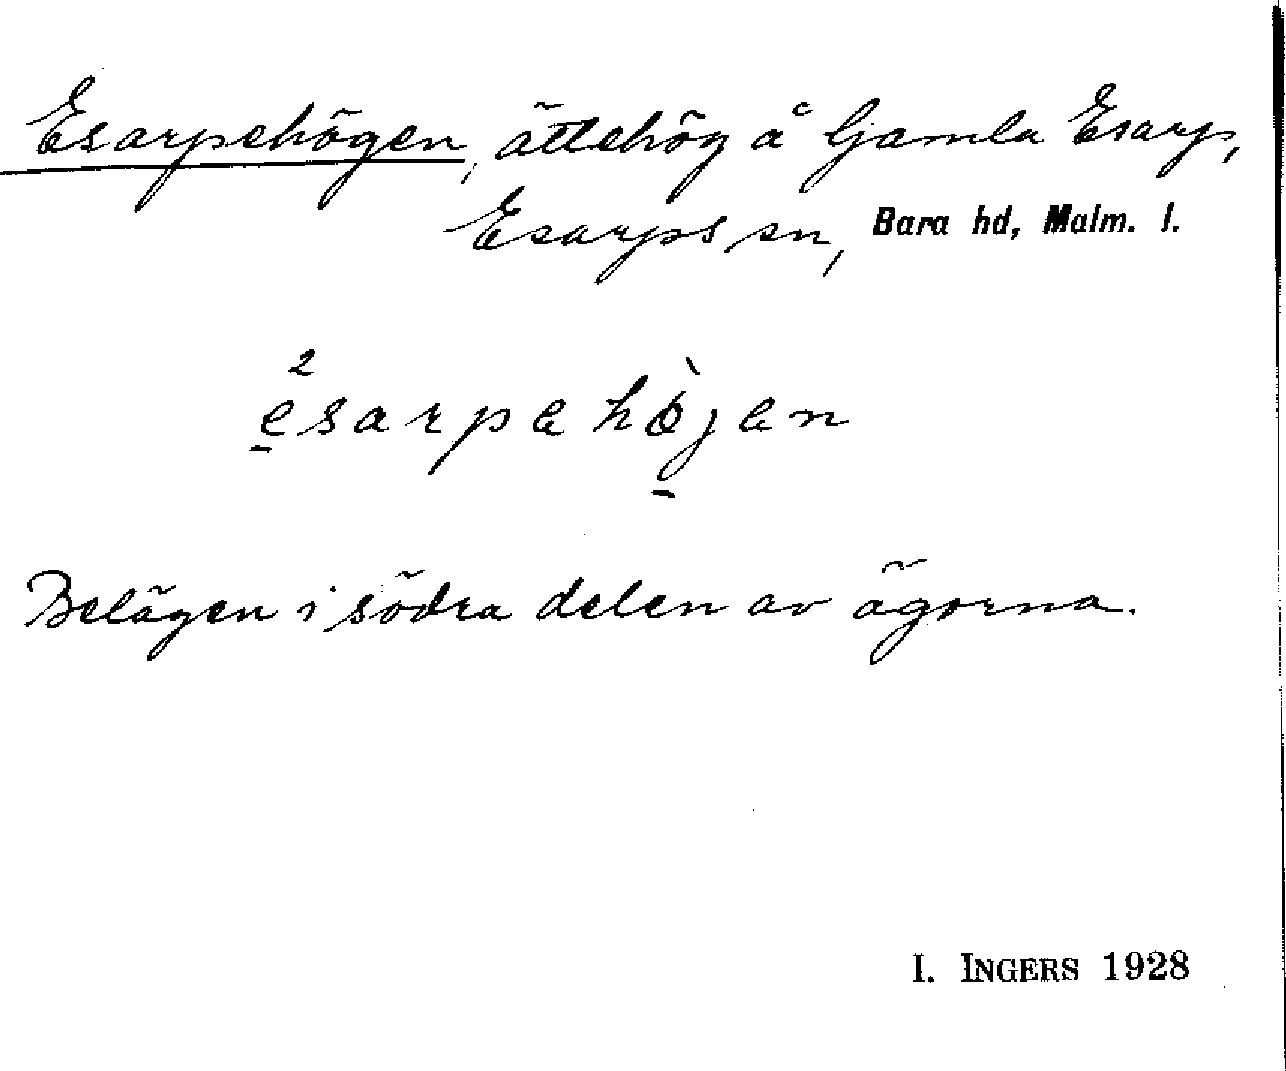 Esarpehögen, ättehög å Gamla Esarp,
Esarps sn, Bara hd, Malm. l.
²esarpehòjen
Belägen i södra delen av ägorna.
I. INGERS 1928